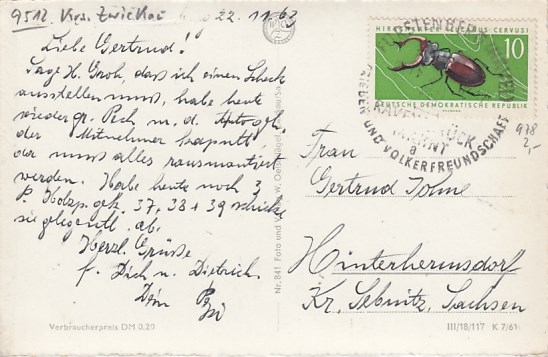 9512 Krs. Zwickau 22. 11. 63
Liebe Gertrud!
Sage H. Groh, dass ich einen Scheck
ausstellen muss, habe heute
wieder gr. Pech m. d.
der Mitnehmer kaputt,
der muss alles
werden. Habe heute noch 3
P. Holzp. gek. 37, 38 + 39 schicke
sie gelegentl. ab.
Herzl. Grüsse
f. Dich u. Dietrich
Dein
HIRSCHKÄFER LUCANUS CERVUS
10
DEUTSCHE DEMOKRATISCHE REPUBLIK
FÜRSTENBERG
RAVENSBRÜCK
MAHNT
a
FRIEDEN UND VÖLKERFREUNDSCHAFT
978
2,-
Frau
Gertrud Tohme
Hinterhermsdorf
Kr. Sebnitz, Sachsen
Nr. 841 Foto und Verlag W.
Verbraucherpreis DM 0,20
III/18/117 K 7/61